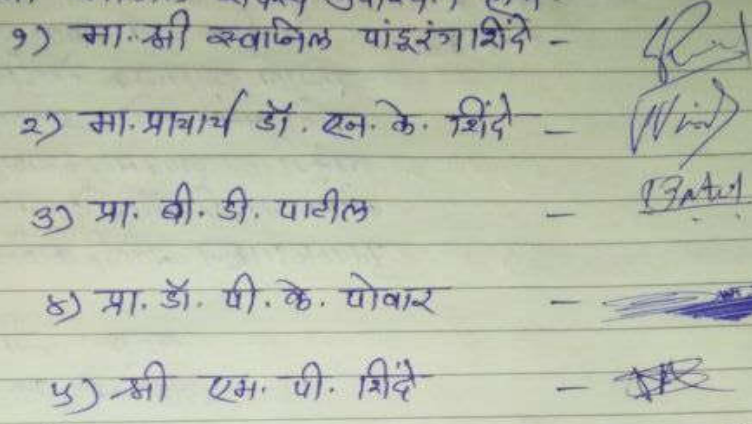 १) मा. श्री स्वप्निल पांडूरंग शिंदे -
२) मा. प्राचार्य डॉ. एन. के. शिंदे -
३) प्रा. बी. डी. पाटील -
४) प्रा. डॉ. पी. के. पोवार -
५) श्री एम. पी. शिंदे -